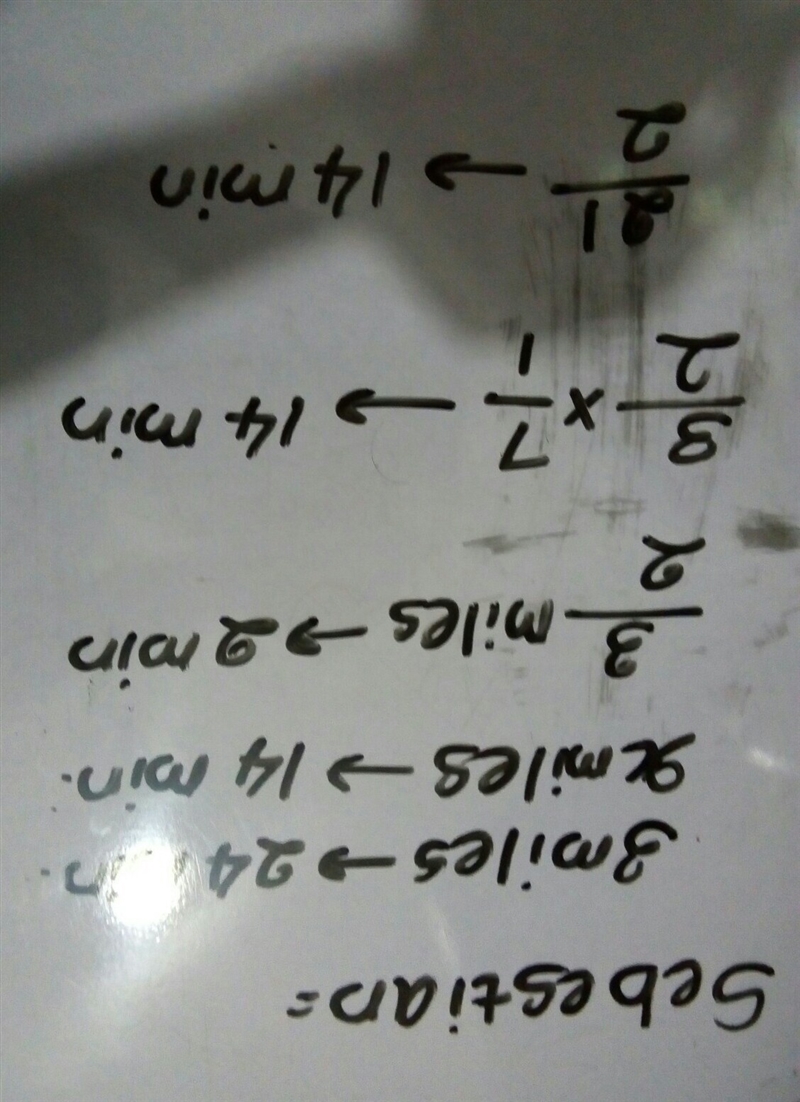 Sebestian=
3miles → 24 min.
xmiles → 14 min.
3/2 miles → 2 min
3/2 × 7/1 → 14 min
21/2 → 14 min